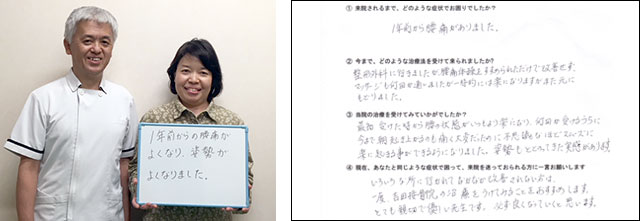 1年前からの腰痛が
よくなり、姿勢が
よくなりました。
① 来院されるまで、どのような症状でお困りでしたか?
1年前から腰痛がありました。
② 今まで、どのような治療法を受けて来られましたか?
整形外科に行きましたが、腰痛体操をすすめられただけで改善せず、
マッサージも何回か通いましたが一時的には楽になりますがまた元に
もどりました。
③ 当院の治療を受けてみていかがでしたか?
最初受けた時から腰の状態がいつもより楽になり、何回か受けるうちに
今まで朝起き上がるのも痛く大変だったのに不思議なほどスムーズに
楽に起きる事ができるようになりました。姿勢もととのってきた実感があります
④ 現在、あなたと同じような症状で困って、来院を迷っておられる方に一言お願いします
いろいろな所に行かれてなかなか改善されない方は、
一度、吉田接骨院の治療をうけてみることをおすすめします。
とても親切で優しい先生です。必ず良くなっていくと思います。